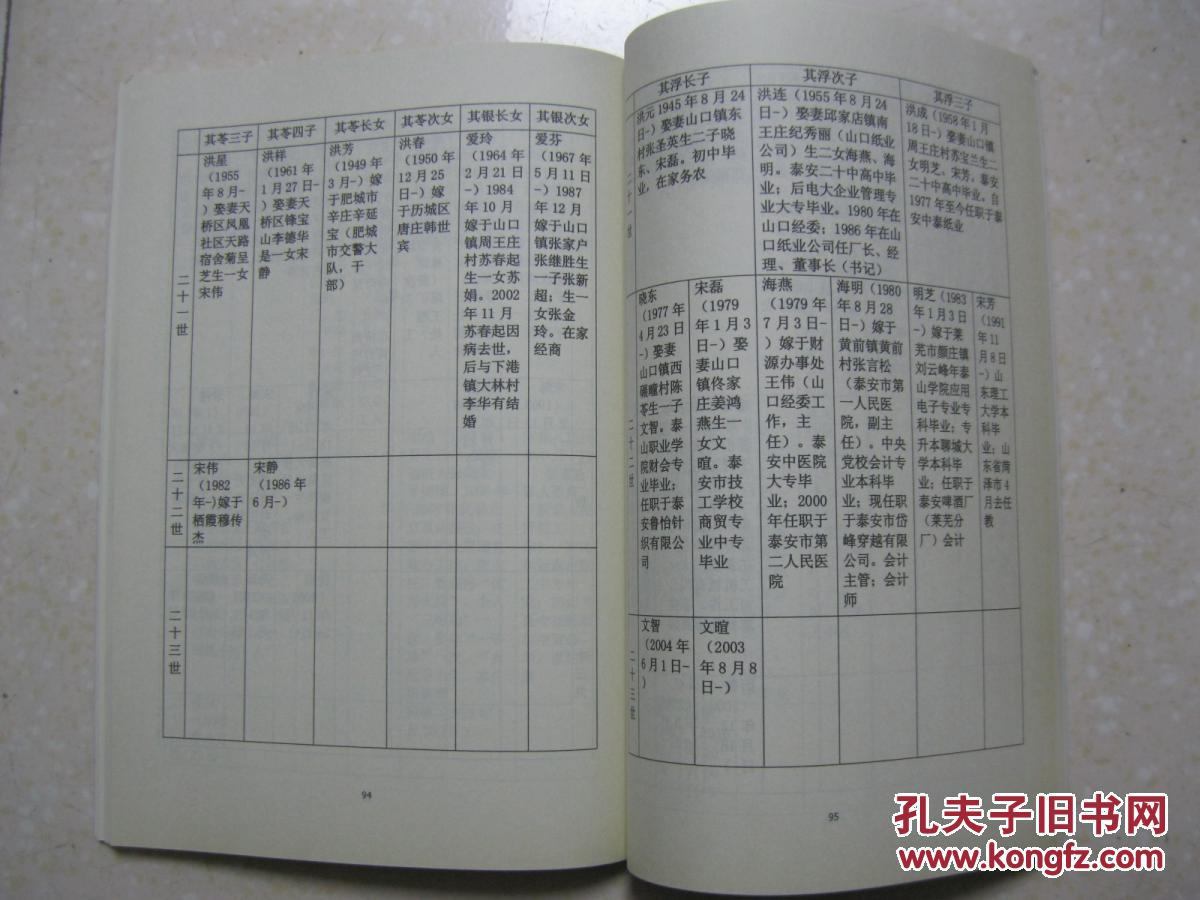 其苓三子
其苓四子
其苓长女
其苓次女
其银长女
其银次女
二十一世
洪星
(1955
年8月-
)娶妻天
桥区凤凰
社区天路
宿舍菊呈
芝生一女
宋伟
洪祥
(1961年
1月27日-
)娶妻天
桥区锋宝
山李德华
是一女宋
静
洪芳
(1949年
3月-)嫁
于肥城市
辛庄辛延
宝(肥城
市交警大
队，干
部)
洪春
(1950年
12月25
日-)嫁
于历城区
唐庄韩世
宾
爱玲
(1964年
2月21日
-)1984
年10月
嫁于山口
镇周王庄
村苏春起
生一女苏
娟。2002
年11月
苏春起因
病去世，
后与下港
镇大林村
李华有结
婚
爱芬
(1967年
5月11日
-)1987
年12月
嫁于山口
镇张家户
张继胜生
一子张新
超；生一
女张金
玲。在家
经商
二十二世
宋伟
(1982
年-)嫁于
栖霞穆传
杰
宋静
(1986年
6月-)
二十三世
94
其浮长子
其浮次子
其浮三子
二十一世
洪元1945年8月24
日-)娶妻山口镇东
村张圣英生二子晓
东、宋磊。初中毕
业，在家务农
洪连(1955年8月24
日-)娶妻邱家店镇南
王庄纪秀丽(山口纸业
公司)生二女海燕、海
明。泰安二十中高中毕
业；后电大企业管理专
业大专毕业。1980年在
山口经委；1986年在山
口纸业公司任厂长、经
理、董事长(书记)
洪成(1958年1月
18日-)娶妻山口镇
周王庄村苏宝兰生二
女明芝、宋芳，泰安
二十中高中毕业。自
1977年至今任职于泰
安中泰纸业
二十二世
晓东
(1977年
4月23日
-)娶妻
山口镇西
碾疃村陈
苓生一子
文智。泰
山职业学
院财会专
业毕业；
任职于泰
安鲁怡针
织有限公
司
宋磊
(1979
年1月3
日-)娶
妻山口
镇佟家
庄姜鸿
燕生一
女文
暄。泰
安市技
工学校
商贸专
业中专
毕业
海燕
(1979年
7月3日-
)嫁于财
源办事处
王伟(山
口经委工
作，主
任)。泰
安中医院
大专毕
业；2000
年任职于
泰安市第
二人民医
院
海明(1980
年8月28
日-)嫁于
黄前镇黄前
村张言松
(泰安市第
一人民医
院，副主
任)。中央
党校会计专
业本科毕
业；现任职
于泰安市岱
峰穿越有限
公司。会计
主管；会计
师
明芝(1983
年1月3日
-)嫁于莱
芜市颜庄镇
刘云峰年泰
山学院应用
电子专业专
科毕业；专
升本聊城大
学本科毕
业；任职于
泰安啤酒厂
(莱芜分
厂)会计
宋芳
(1991
年11
月8日
-)山
东理工
大学本
科毕
业；山
东省菏
泽市4
月去任
教
二十三世
文智
(2004年
6月1日-
)
文暄
(2003
年8月8
日-)
95
孔夫子旧书网
www.kongfz.com